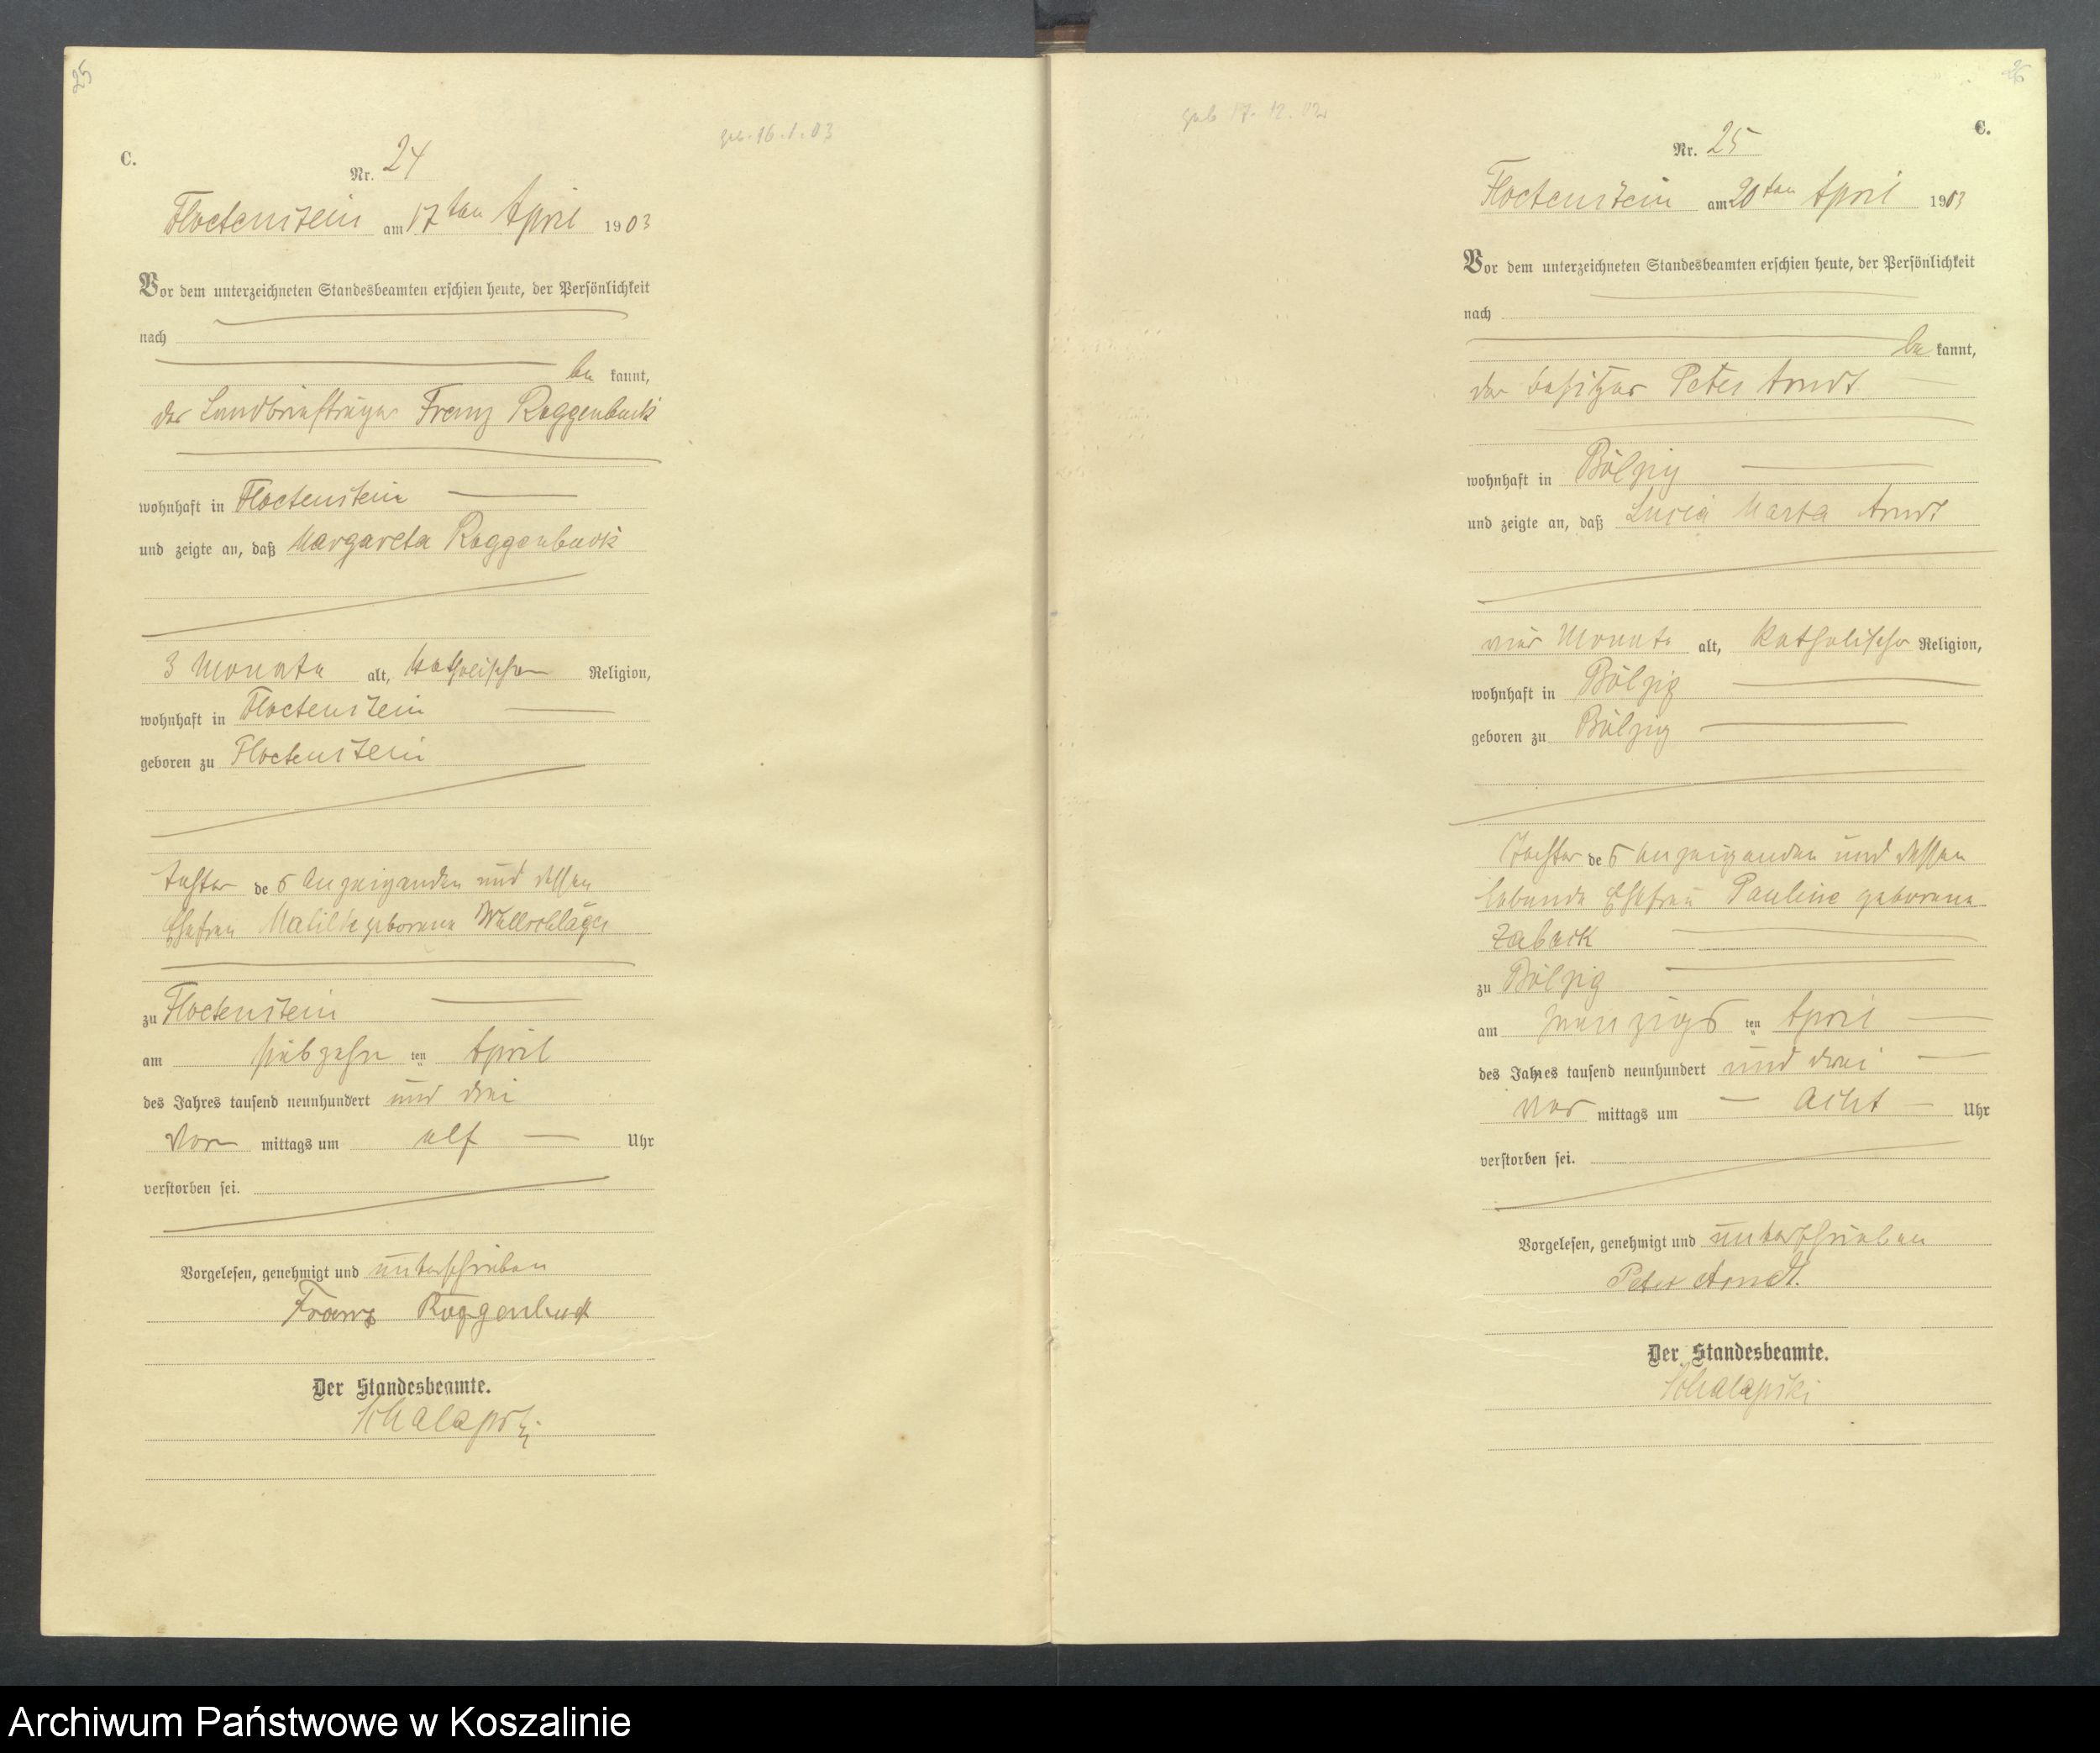 25
geb. 16.1.03
C.
Nr. 24
Floetenstein am 17ten April 1903
Vor dem unterzeichneten Standesbeamten erschien heute, der Persönlichkeit
nach
be kannt,
der Landbriefträger Franz Roggenbuck
wohnhaft in Floetenstein
und zeigte an, daß Margareta Roggenbuck
3 Monate alt, katholischer Religion,
wohnhaft in Floetenstein
geboren zu Floetenstein
Tochter des Anzeigenden und dessen
Ehefrau Matilde geborene Wollschläger
zu Floetenstein
am siebzehn ten April
des Jahres tausend neunhundert und drei
Vor mittags um elf Uhr
verstorben sei.
Vorgelesen, genehmigt und unterschrieben
Franz Roggenbuck
Der Standesbeamte.
Schalapski
26
geb 17.12.02
C.
Nr. 25
Floetenstein am 20ten April 1903
Vor dem unterzeichneten Standesbeamten erschien heute, der Persönlichkeit
nach
be kannt,
der Besitzer Peter Arndt
wohnhaft in Bölzig
und zeigte an, daß Lucia Marta Arndt
vier Monate alt, katholischer Religion,
wohnhaft in Bölzig
geboren zu Bölzig
Tochter des Anzeigenden und dessen
lebende Ehefrau Pauline geborene
Zabock
zu Bölzig
am zwanzigs ten April
des Jahres tausend neunhundert und drei
Vor mittags um acht Uhr
verstorben sei.
Vorgelesen, genehmigt und unterschrieben
Peter Arndt.
Der Standesbeamte.
Schalapski
Archiwum Państwowe w Koszalinie